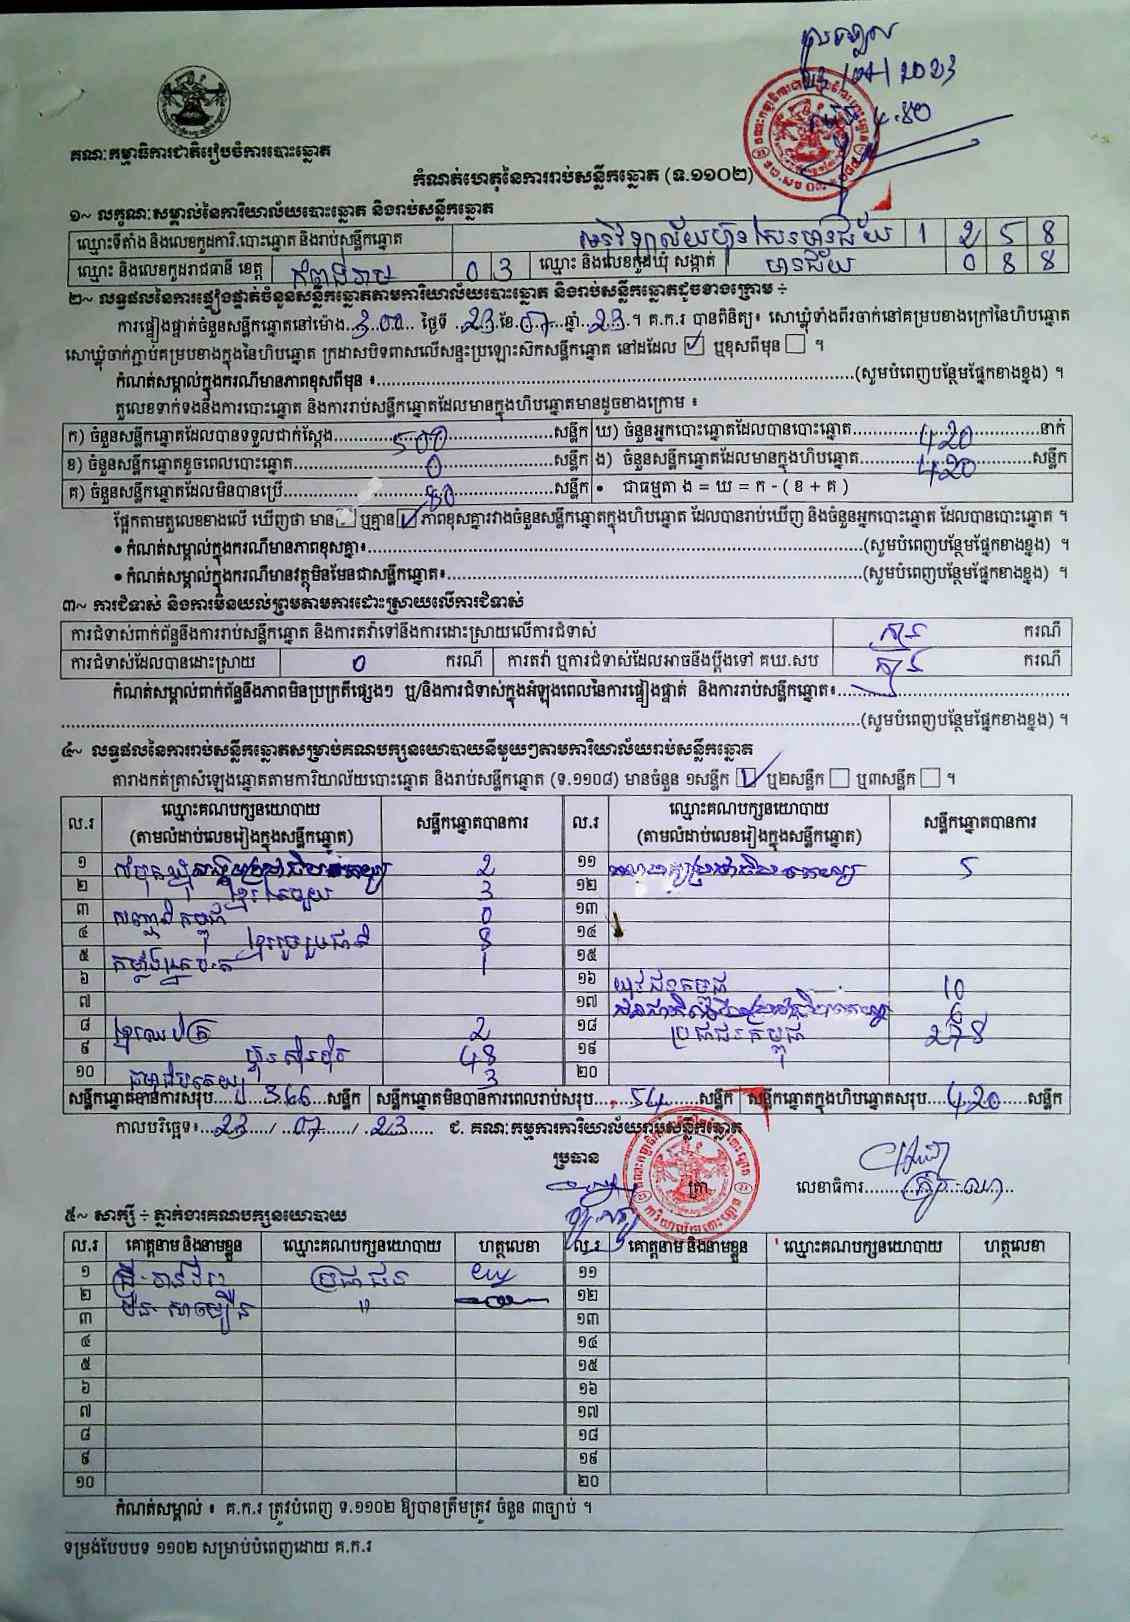 គណៈកម្មាធិការជាតិរៀបចំការបោះឆ្នោត
2023
4.40
កំណត់ហេតុនៃការរាប់សន្លឹកឆ្នោត (ទ.១១០២)
១~ លក្ខណៈសម្គាល់នៃការិយាល័យបោះឆ្នោត និងរាប់សន្លឹកឆ្នោត
ឈ្មោះទីតាំង និងលេខកូដការិ.បោះឆ្នោត និងរាប់សន្លឹកឆ្នោត 1 2 5 8
ឈ្មោះ និងលេខកូដរាជធានី ខេត្ត កំពង់ចាម 0 3 ឈ្មោះ និងលេខកូដឃុំ សង្កាត់ មានជ័យ 0 8 8
២~ លទ្ធផលនៃការផ្ទៀងផ្ទាត់ចំនួនសន្លឹកឆ្នោតតាមការិយាល័យបោះឆ្នោត និងរាប់សន្លឹកឆ្នោតដូចខាងក្រោម ÷
ការផ្ទៀងផ្ទាត់ចំនួនសន្លឹកឆ្នោតនៅម៉ោង...3:00... ថ្ងៃទី ..23..ខែ..07..ឆ្នាំ..23..។ គ.ក.រ បានពិនិត្យ៖ សោឃ្លុំទាំងពីរចាក់នៅគម្របខាងក្រៅនៃហិបឆ្នោត
សោឃ្លុំចាក់ភ្ជាប់គម្របខាងក្នុងនៃហិបឆ្នោត ក្រដាសបិទពាសលើសន្ទះប្រឡោះស៊កសន្លឹកឆ្នោត នៅដដែល ☑ ឬខុសពីមុន ☐ ។
កំណត់សម្គាល់ក្នុងករណីមានភាពខុសពីមុន ៖......(សូមបំពេញបន្ថែមផ្នែកខាងខ្នង) ។
តួលេខទាក់ទងនឹងការបោះឆ្នោត និងការរាប់សន្លឹកឆ្នោតដែលមានក្នុងហិបឆ្នោតមានដូចខាងក្រោម ៖
ក) ចំនួនសន្លឹកឆ្នោតដែលបានទទួលជាក់ស្តែង......500......សន្លឹក ឃ) ចំនួនអ្នកបោះឆ្នោតដែលបានបោះឆ្នោត......420......នាក់
ខ) ចំនួនសន្លឹកឆ្នោតខូចពេលបោះឆ្នោត......0......សន្លឹក ង) ចំនួនសន្លឹកឆ្នោតដែលមានក្នុងហិបឆ្នោត......420......សន្លឹក
គ) ចំនួនសន្លឹកឆ្នោតដែលមិនបានប្រើ......80......សន្លឹក • ជាធម្មតា ង = ឃ = ក - ( ខ + គ )
ផ្អែកតាមតួលេខខាងលើ ឃើញថា មាន☐ ឬគ្មាន☑ ភាពខុសគ្នារវាងចំនួនសន្លឹកឆ្នោតក្នុងហិបឆ្នោត ដែលបានរាប់ឃើញ និងចំនួនអ្នកបោះឆ្នោត ដែលបានបោះឆ្នោត ។
• កំណត់សម្គាល់ក្នុងករណីមានភាពខុសគ្នា៖......(សូមបំពេញបន្ថែមផ្នែកខាងខ្នង) ។
• កំណត់សម្គាល់ក្នុងករណីមានវត្ថុមិនមែនជាសន្លឹកឆ្នោត៖......(សូមបំពេញបន្ថែមផ្នែកខាងខ្នង) ។
៣~ ការជំទាស់ និងការមិនយល់ព្រមតាមការដោះស្រាយលើការជំទាស់
ការជំទាស់ពាក់ព័ន្ធនឹងការរាប់សន្លឹកឆ្នោត និងការតវ៉ាទៅនឹងការដោះស្រាយលើការជំទាស់ គ្មាន ករណី
ការជំទាស់ដែលបានដោះស្រាយ 0 ករណី ការតវ៉ា ឬការជំទាស់ដែលអាចនឹងប្តឹងទៅ គឃ.សប គ្មាន ករណី
កំណត់សម្គាល់ពាក់ព័ន្ធនឹងភាពមិនប្រក្រតីផ្សេងៗ ឬ/និងការជំទាស់ក្នុងអំឡុងពេលនៃការផ្ទៀងផ្ទាត់ និងការរាប់សន្លឹកឆ្នោត៖......
......(សូមបំពេញបន្ថែមផ្នែកខាងខ្នង) ។
៤~ លទ្ធផលនៃការរាប់សន្លឹកឆ្នោតសម្រាប់គណបក្សនយោបាយនីមួយៗតាមការិយាល័យរាប់សន្លឹកឆ្នោត
តារាងកត់ត្រាសំឡេងឆ្នោតតាមការិយាល័យបោះឆ្នោត និងរាប់សន្លឹកឆ្នោត (ទ.១១០៨) មានចំនួន ១សន្លឹក ☑ ឬ២សន្លឹក ☐ ឬ៣សន្លឹក ☐ ។
ល.រ ឈ្មោះគណបក្សនយោបាយ (តាមលំដាប់លេខរៀងក្នុងសន្លឹកឆ្នោត) សន្លឹកឆ្នោតបានការ ល.រ ឈ្មោះគណបក្សនយោបាយ (តាមលំដាប់លេខរៀងក្នុងសន្លឹកឆ្នោត) សន្លឹកឆ្នោតបានការ
១ 2 ១១ 5
២ 3 ១២
៣ 0 ១៣
៤ ខ្មែររួបរួមជាតិ 8 ១៤
៥ 1 ១៥
៦ ១៦ 10
៧ ១៧ 6
៨ 2 ១៨ ប្រជាជនកម្ពុជា 278
៩ ហ្វ៊ុនស៊ិនប៉ិច 48 ១៩
១០ 3 ២០
សន្លឹកឆ្នោតបានការសរុប......366....សន្លឹក សន្លឹកឆ្នោតមិនបានការពេលរាប់សរុប......54......សន្លឹក សន្លឹកឆ្នោតក្នុងហិបឆ្នោតសរុប....420....សន្លឹក
កាលបរិច្ឆេទ៖...23..../...07..../..23..... ជ. គណៈកម្មការការិយាល័យរាប់សន្លឹកឆ្នោត
ប្រធាន
ត្រា លេខាធិការ......
៥~ សាក្សី ÷ ភ្នាក់ងារគណបក្សនយោបាយ
ល.រ គោត្តនាម និងនាមខ្លួន ឈ្មោះគណបក្សនយោបាយ ហត្ថលេខា ល.រ គោត្តនាម និងនាមខ្លួន ឈ្មោះគណបក្សនយោបាយ ហត្ថលេខា
១ ប្រជាជន ១១
២ " ១២
៣ ១៣
៤ ១៤
៥ ១៥
៦ ១៦
៧ ១៧
៨ ១៨
៩ ១៩
១០ ២០
កំណត់សម្គាល់ ៖ គ.ក.រ ត្រូវបំពេញ ទ.១១០២ ឱ្យបានត្រឹមត្រូវ ចំនួន ៣ច្បាប់ ។
ទម្រង់បែបបទ ១១០២ សម្រាប់បំពេញដោយ គ.ក.រ